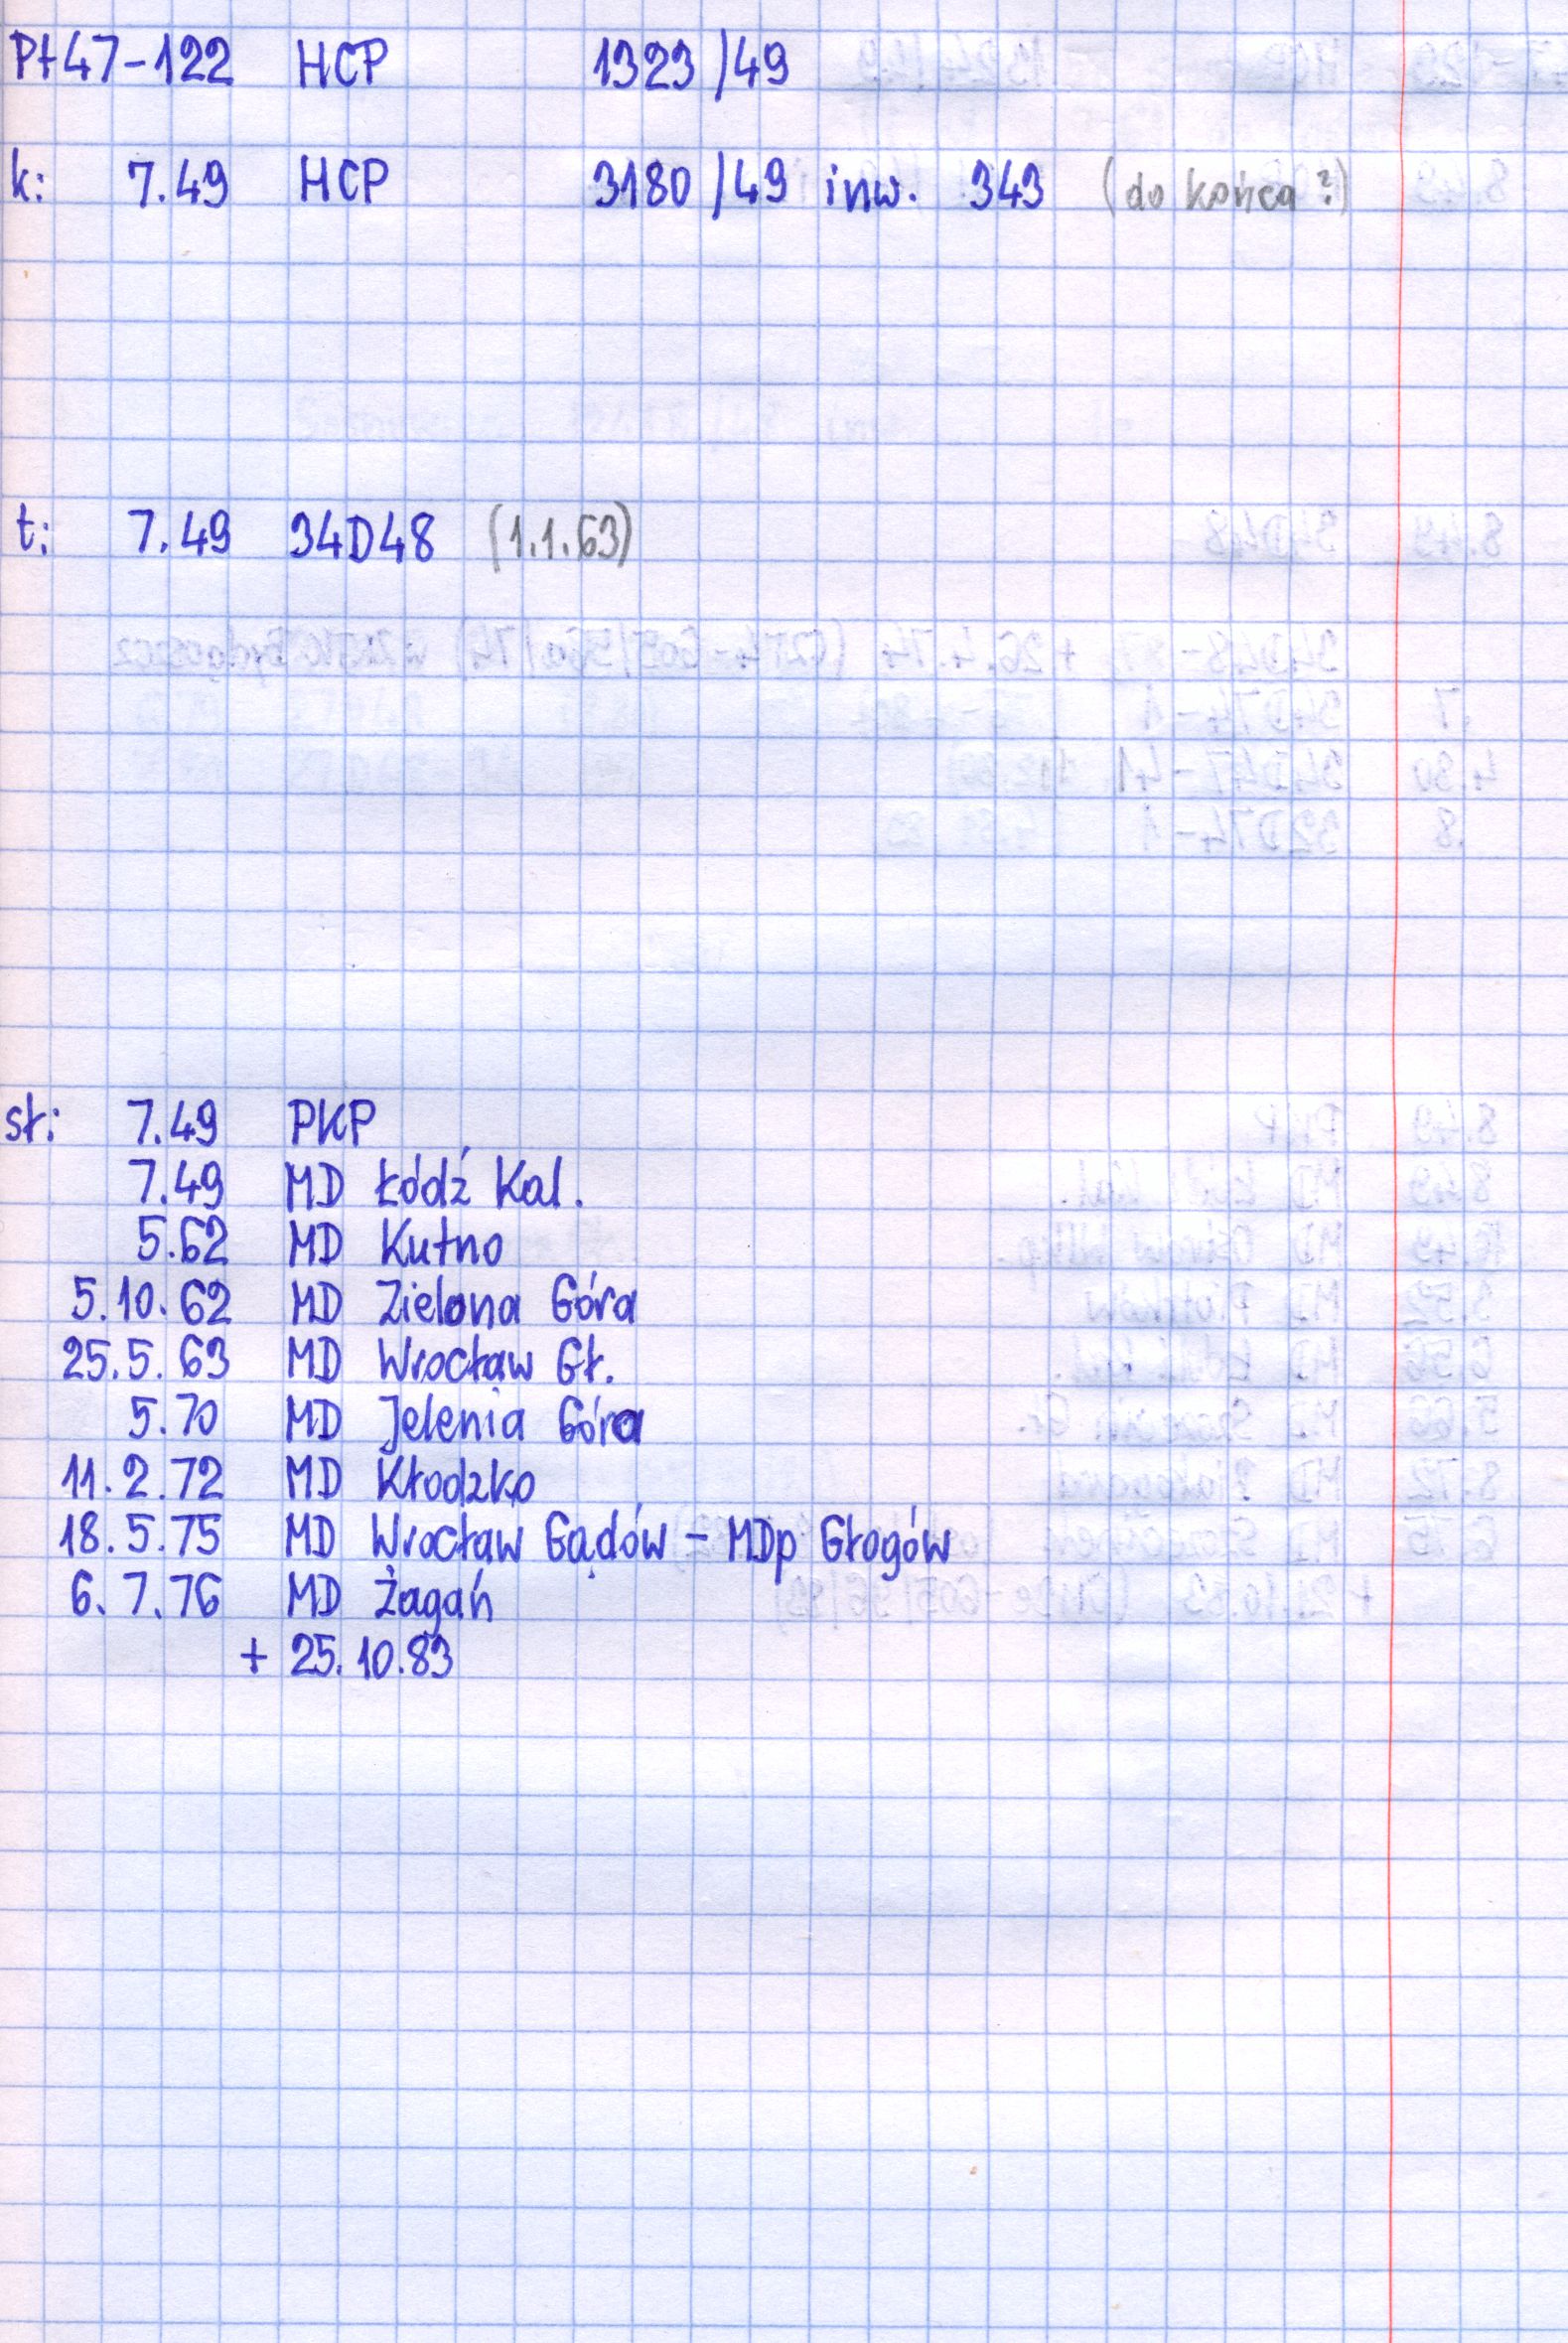 Pt47-122 HCP 1323/49
k: 7.49 HCP 3180/49 inw. 343 (do końca?)
t: 7.49 34D48 (1.1.63)
st: 7.49 PKP
7.49 MD Łódź Kal.
5.62 MD Kutno
5.10.62 MD Zielona Góra
25.5.63 MD Wrocław Gł.
5.70 MD Jelenia Góra
11.2.72 MD Kłodzko
18.5.75 MD Wrocław Gądów - MDp Głogów
6.7.76 MD Żagań
+ 25.10.83